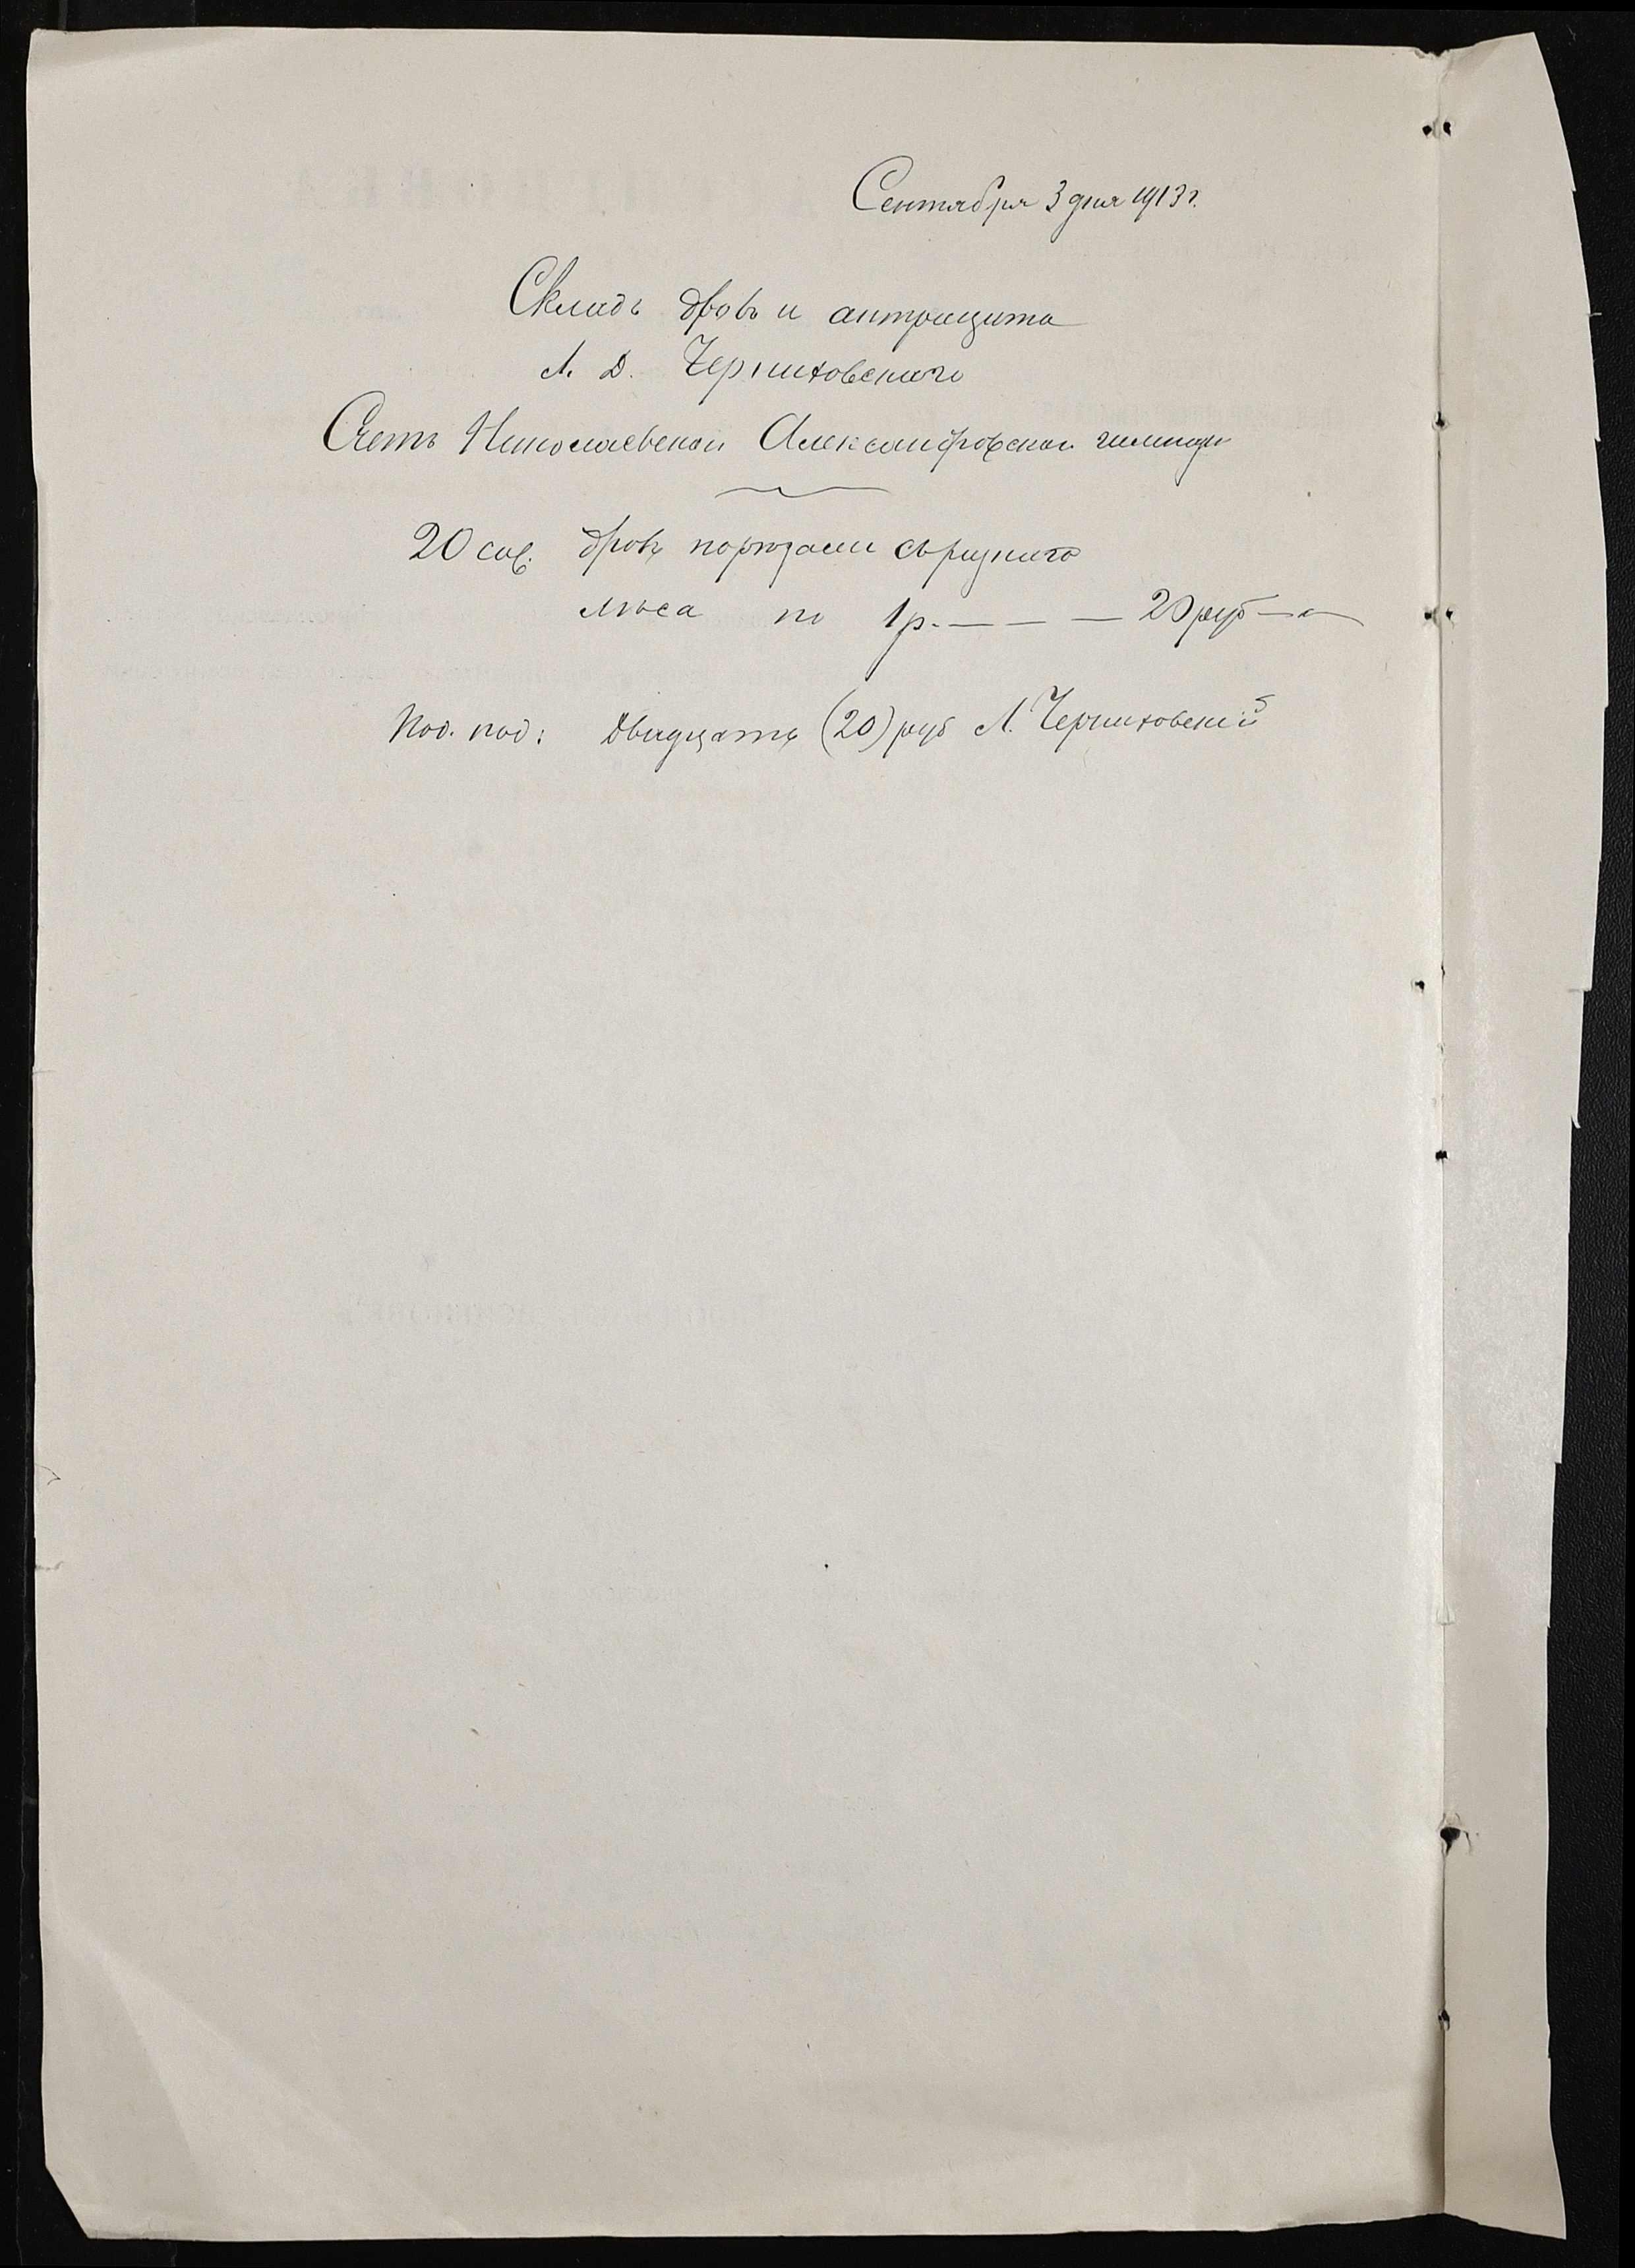 Сентября 3 дня 1913 г.
Складъ дровъ и антрацита
Л. Д. Черниховскаго
Счетъ Николаевской Александровской гимназіи
20 саж. дровъ
лѣса по 1 р. — — — 20 руб —
Пол. пол: Двадцать (20) руб Л. Черниховскій